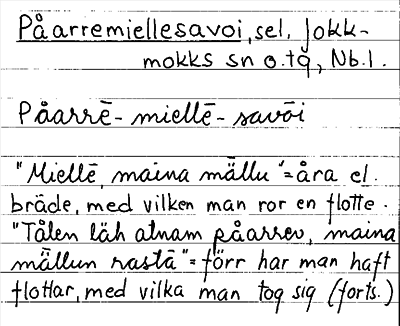 Påarremiellesavoi, sel, Jokk-
mokks sn o.tg, Nb.l.
Påarrē-miellē-savōi
"Miellē, maina mällu" = åra el.
bräde, med vilken man ror en flotte.
"Tålen läh atnam påarrev, maina
mällun rastā" = förr har man haft
flottar, med vilka man tog sig (forts.)